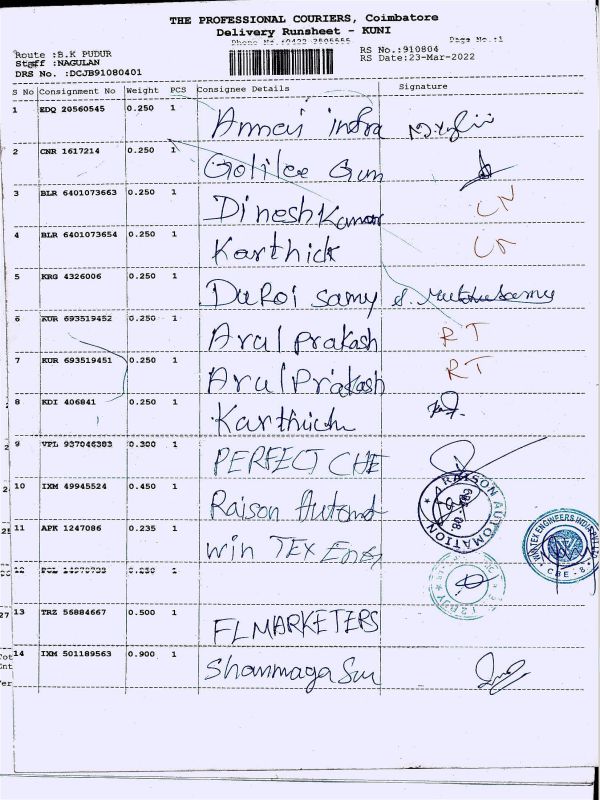 THE PROFESSIONAL COURIERS, Coimbatore
Delivery Runsheet - KUNI
Phone No.:0422 Page No.:1
Route :B.K PUDUR RS No.:910804
Staff :NAGULAN RS Date:23-Mar-2022
DRS No. :DCJB91080401
S No Consignment No Weight PCS Consignee Details Signature
1 EDQ 20560545 0.250 1 Annai infra
2 CNR 1617214 0.250 1 Golilee Gum
3 BLR 6401073663 0.250 1 Dinesh Kumar CN
4 BLR 6401073654 0.250 1 Karthick CN
5 KRG 4326006 0.250 1 DuRoi samy S. Muthusamy
6 KUR 693519452 0.250 1 Arul prakash RT
7 KUR 693519451 0.250 1 Arul Prakash RT
8 KDI 406841 0.250 1 Karthick
9 VPL 937046303 0.300 1 PERFECT CHE
10 IXM 49945524 0.450 1 Raison Automat
RAISON AUTOMATION
11 APK 1247086 0.235 1 win TEX Engg
WINTEX ENGINEERS INDIA
CBE - 8
12 1
13 TRZ 56884667 0.500 1 FL MARKETERS
14 IXM 501189563 0.900 1 Shanmaga Sun